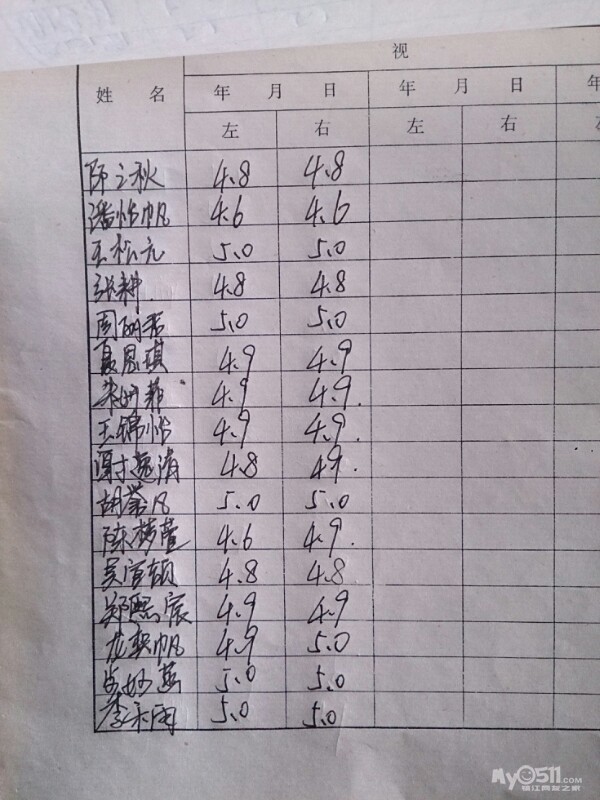 视
姓 名 年 月 日 年 月 日 年
左 右 左 右
陈之秋 4.8 4.8
潘怡帆 4.6 4.6
王松元 5.0 5.0
张翀 4.8 4.8
周 5.0 5.0
夏恩琪 4.9 4.9
朱 菲 4.9 4.9.
王锦怡 4.9 4.9.
逸涛 4.8 4.9.
胡誉凡 5.0 5.0
陈梦萱 4.6 4.9.
吴宜颖 4.8 4.8
郑熙宸 4.9 4.9
龙 帆 4.9 5.0
妙 5.0 5.0
李 雨 5.0 5.0
My0511.COM
镇江网友之家